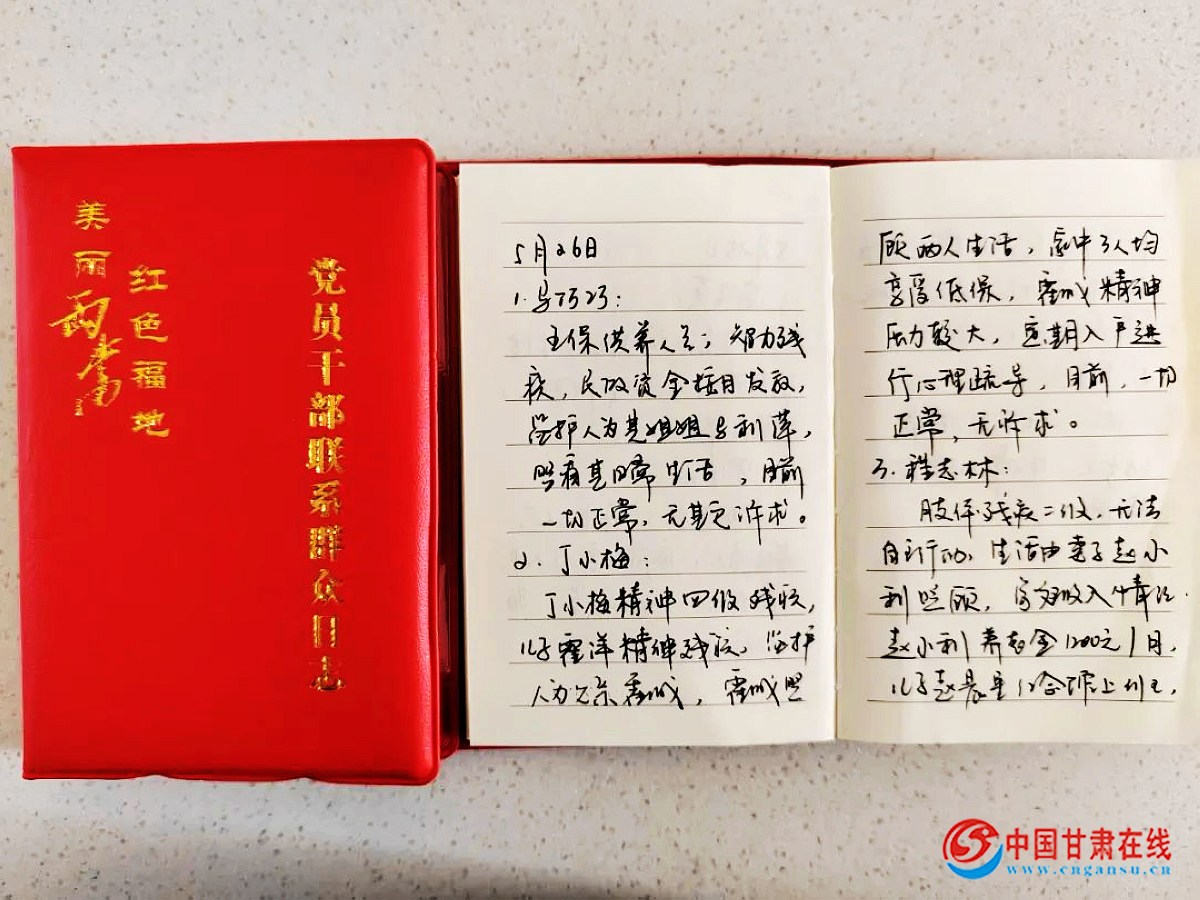 美丽
红色福地
党员干部联系群众日志
5月26日
1.
供养人员；智力残
疾，民政资金按月发放，
监护人为其姐姐利萍，
照看其日常生活，目前
一切正常，无其它诉求。
2.丁小梅：
丁小梅精神四级残疾，
儿子霍洋精神残疾，监护
人为父亲霍成，霍成照
顾两人生活，家中3人均
享受低保，霍成精神
压力较大，定期入户进
行心理疏导，目前，一切
正常，无诉求。
3.程志林：
肢体残疾二级，无法
自主行动，生活由妻子赵小
利照顾，家庭收入情况：
赵小利养老金1200元/月，
儿子赵
中国甘肃在线
www.cngansu.cn